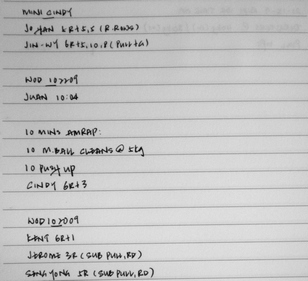 MINI CINDY
JOHAN 5R+5,5 (R.ROWS)
JIN-WY 6R+5,10,8 (PULL+G)
WOD 102209
JUAN 10:04
10 MINS AMRAP:
10 M.BALL CLEANS @ 5kg
10 PUSH UP
CINDY 6R+3
WOD 102009
KENT 6R+1
JEROME 3R (SUB PULL, RD)
SANG YONG 5R (SUB PULL, RD)